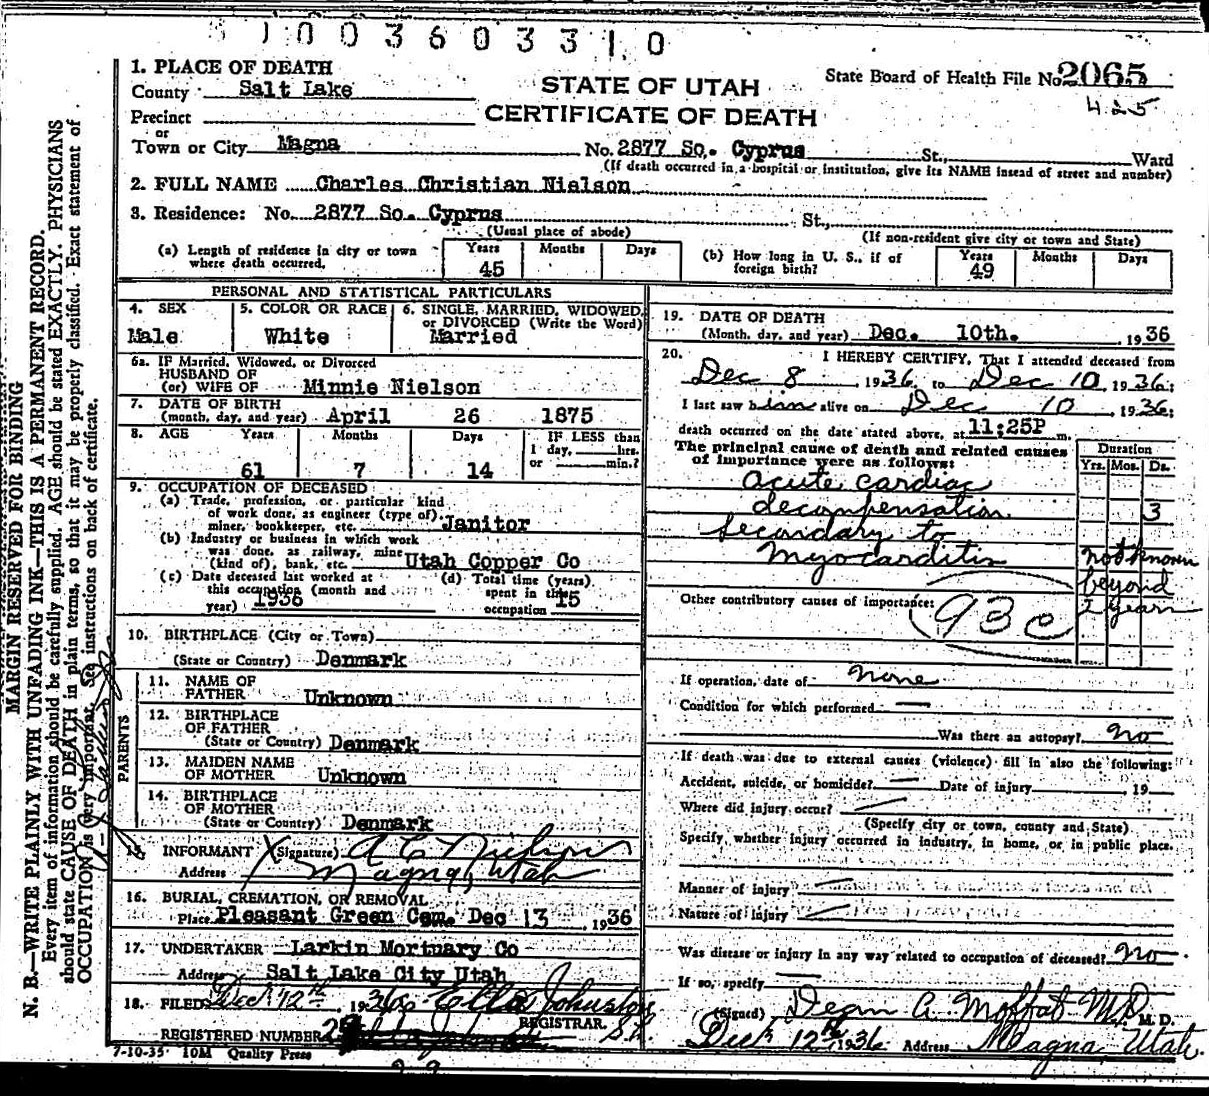 1003603310
1. PLACE OF DEATH
County Salt Lake
STATE OF UTAH
CERTIFICATE OF DEATH
State Board of Health File No. 2065
425
Precinct
or
Town or City Magna No. 2877 So. Cyprus St., Ward
(If death occurred in a hospital or institution, give its NAME insead of street and number)
2. FULL NAME Charles Christian Nielson
3. Residence: No. 2877 So. Cyprus St.,
(Usual place of abode) (If non-resident give city or town and State)
(a) Length of residence in city or town where death occurred. Years 45 Months Days
(b) How long in U. S., if of foreign birth? Years 49 Months Days
PERSONAL AND STATISTICAL PARTICULARS
4. SEX Male
5. COLOR OR RACE White
6. SINGLE, MARRIED, WIDOWED, or DIVORCED (Write the Word) Married
6a. IF Married, Widowed, or Divorced
HUSBAND OF
(or) WIFE OF Minnie Nielson
7. DATE OF BIRTH
(month, day, and year) April 26 1875
8. AGE Years 61 Months 7 Days 14 IF LESS than 1 day, hrs. or min.?
9. OCCUPATION OF DECEASED
(a) Trade, profession, or particular kind
of work done, as engineer (type of),
miner, bookkeeper, etc. Janitor
(b) Industry or business in which work
was done, as railway, mine
(kind of), bank, etc. Utah Copper Co
(c) Date deceased last worked at this occupation (month and year) 1936
(d) Total time (years) spent in this occupation 15
10. BIRTHPLACE (City or Town)
(State or Country) Denmark
PARENTS
11. NAME OF
FATHER Unknown
12. BIRTHPLACE
OF FATHER
(State or Country) Denmark
13. MAIDEN NAME
OF MOTHER Unknown
14. BIRTHPLACE
OF MOTHER
(State or Country) Denmark
15. INFORMANT X (Signature) A C Nielson
Address Magna, Utah
16. BURIAL, CREMATION, OR REMOVAL
Place Pleasant Green Cem. Dec 13, 1936
17. UNDERTAKER Larkin Mortuary Co
Address Salt Lake City Utah
18. FILED Dec 12th, 1936 Johnston
REGISTRAR.
REGISTERED NUMBER
7-10-35 10M Quality Press
19. DATE OF DEATH
(Month, day, and year) Dec. 10th. , 1936
20. I HEREBY CERTIFY, That I attended deceased from
Dec 8, 1936, to Dec 10, 1936;
I last saw him alive on Dec 10, 1936;
death occurred on the date stated above, at 11:25P m.
The principal cause of death and related causes
of importance were as follows:
Duration
Yrs. Mos. Ds.
acute cardiac
decompensation 3
secondary to
myocarditis not known
beyond
2 years
Other contributory causes of importance:
93c
If operation, date of none
Condition for which performed —
Was there an autopsy? No
If death was due to external causes (violence) fill in also the following:
Accident, suicide, or homicide? — Date of injury , 19
Where did injury occur?
(Specify city or town, county and State)
Specify whether injury occurred in industry, in home, or in public place.
Manner of injury
Nature of injury
Was disease or injury in any way related to occupation of deceased? No
If so, specify
(Signed) Dean A. Moffat M.D. M. D.
Dec 12th 1936 Address Magna, Utah.
MARGIN RESERVED FOR BINDING
N. B.—WRITE PLAINLY WITH UNFADING INK—THIS IS A PERMANENT RECORD.
Every item of information should be carefully supplied. AGE should be stated EXACTLY. PHYSICIANS
should state CAUSE OF DEATH in plain terms, so that it may be properly classified. Exact statement of
OCCUPATION is very important. See instructions on back of certificate.